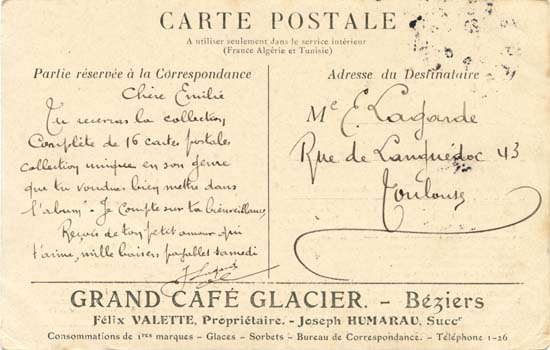 CARTE POSTALE
A utiliser seulement dans le service intérieur
(France Algérie et Tunisie)
Partie réservée à la Correspondance
Chère Emilie
Tu recevras la collection
Complète de 16 cartes postales
collection unique en son genre
que tu voudras bien mettre dans
l'album - Je compte sur ta bienveillance
Reçois de ton petit amour qui
t'aime, mille baisers payables samedi
Adresse du Destinataire
Me E. Lagarde
Rue de Languedoc 43
Toulouse
GRAND CAFÉ GLACIER. - Béziers
Félix VALETTE, Propriétaire. - Joseph HUMARAU, Succr
Consommations de 1res marques - Glaces - Sorbets - Bureau de Correspondance. - Téléphone 1-26